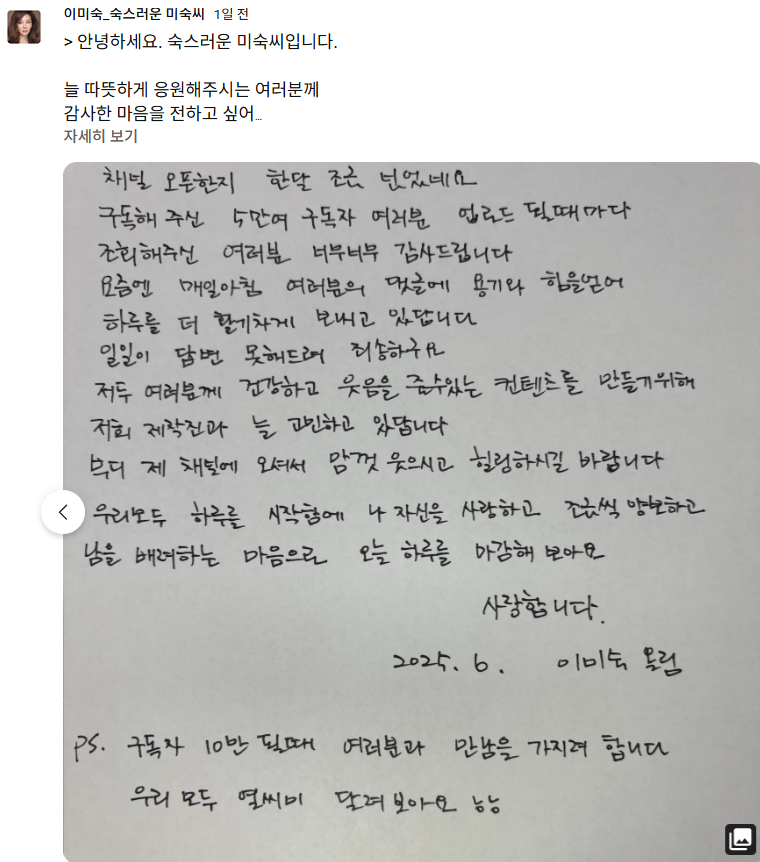 이미숙_숙스러운 미숙씨 1일 전
> 안녕하세요. 숙스러운 미숙씨입니다.
늘 따뜻하게 응원해주시는 여러분께
감사한 마음을 전하고 싶어...
자세히 보기
채널 오픈한지 한달 조금 넘었네요
구독해 주신 5만여 구독자 여러분 업로드 될때마다
조회해주신 여러분 너무너무 감사드립니다
요즘엔 매일아침 여러분의 댓글에 용기와 힘을얻어
하루를 더 활기차게 보내고 있답니다
일일이 답변 못해드려 죄송하구요
저두 여러분께 건강하고 웃음을 줄수있는 컨텐츠를 만들기위해
저희 제작진과 늘 고민하고 있답니다
부디 제 채널에 오셔서 맘껏 웃으시고 힐링하시길 바랍니다
우리모두 하루를 시작함에 나 자신을 사랑하고 조금씩 양보하고
남을 배려하는 마음으로 오늘 하루를 마감해 보아요
사랑합니다.
2025. 6. 이미숙 올림
PS. 구독자 10만 될때 여러분과 만남을 가지려 합니다
우리 모두 열씨미 달려보아요 ㅎㅎ